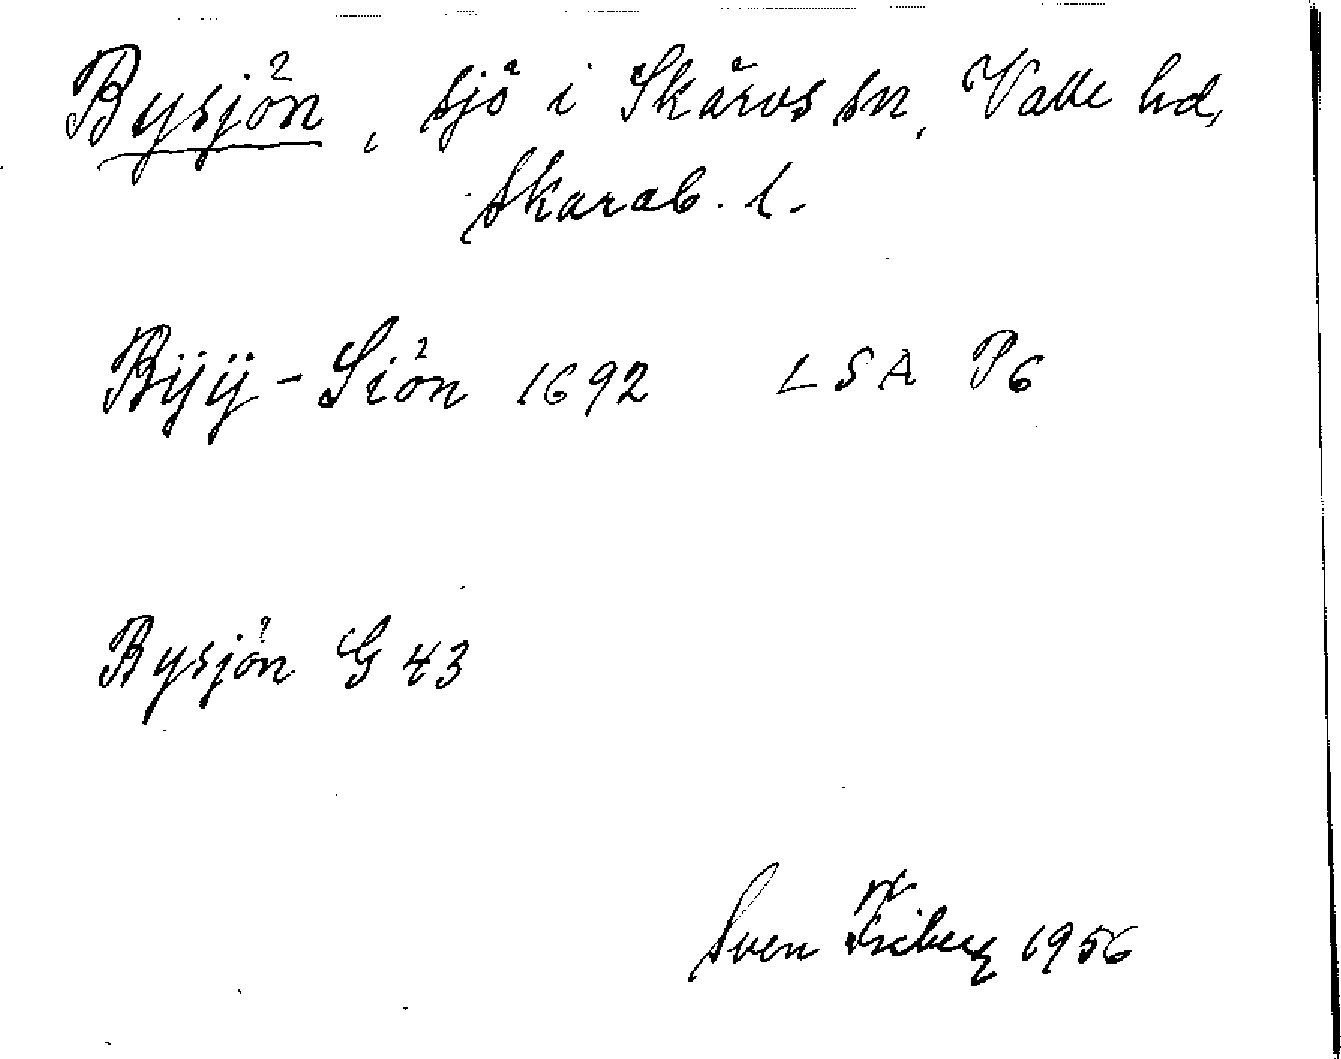 Bysjön, sjö i Skärvs sn, Valle hd,
Skarab. l.
Bÿÿ-Siön 1692 LSA P6
Bysjön G 43
Sven Friberg 1956